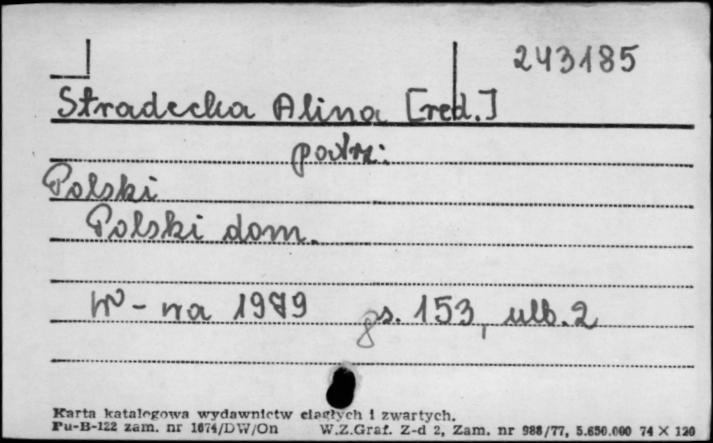 243185
Stradecka Alina [red.]
patrz:
Polski
Polski dom.
W-wa 1979 8 s. 153, nlb. 2
Karta katalogowa wydawnictw ciągłych i zwartych.
Pu-B-122 zam. nr 1674/DW/On W.Z.Graf. Z-d 2, Zam. nr 988/77, 5.650.000 74 × 120